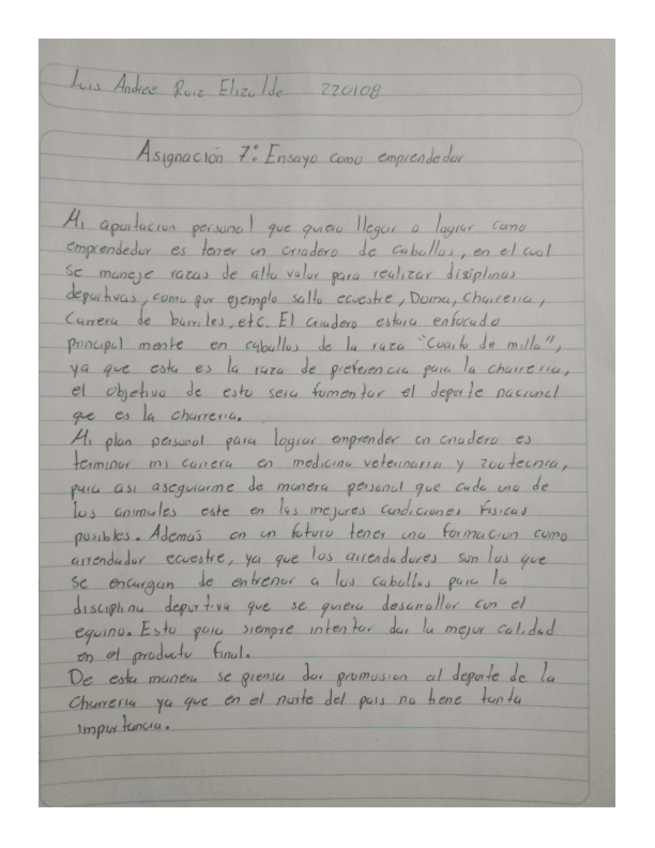 Luis Andree Ruiz Elizalde 220108
Asignación 7: Ensayo como emprendedor
Mi aportacion personal que quiero llegar a lograr como
emprendedor es tener un criadero de caballos, en el cual
se maneje razas de alto valor para realizar disiplinas
deportivas, como por ejemplo salto ecuestre, Doma, Charreria,
Carrera de barriles, etc. El criadero estara enfocado
principal mente en caballos de la raza "Cuarto de milla",
ya que esta es la raza de preferencia para la charreria,
el objetivo de esto sera fomentar el deporte nacional
que es la charreria.
Mi plan personal para lograr emprender un criadero es
terminar mi carrera en medicina veterinaria y zootecnia,
para asi asegurarme de manera personal que cada uno de
los animales este en las mejores condiciones fisicas
posibles. Además en un futuro tener una formacion como
arrendador ecuestre, ya que los arrendadores son los que
se encargan de entrenar a los caballos para la
disciplina deportiva que se quiera desarrollar con el
equino. Esto para siempre intentar dar la mejor calidad
en el producto final.
De esta manera se piensa dar promosion al deporte de la
Charreria ya que en el norte del pais no tiene tanta
importancia.